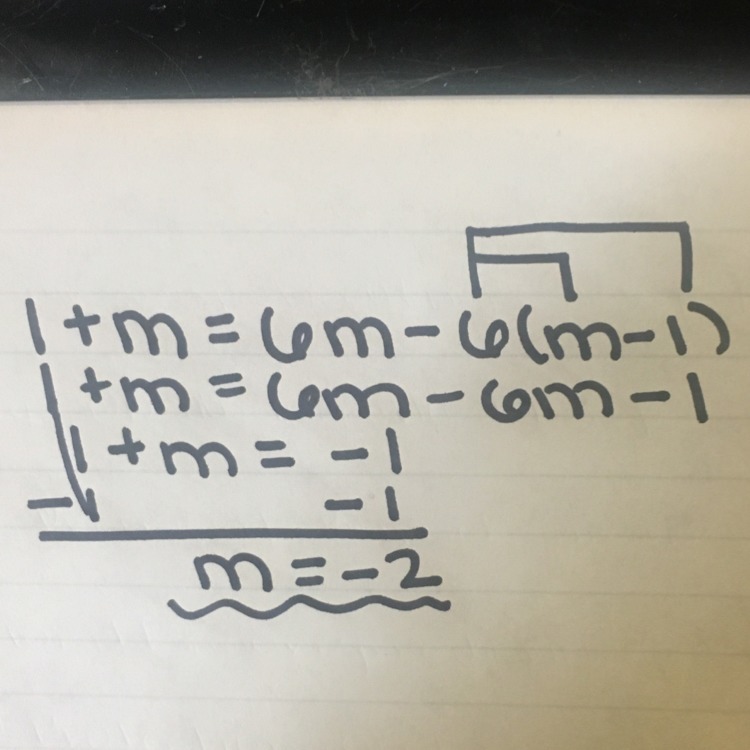 1+m=6m-6(m-1)
1+m=6m-6m-1
1+m=-1
-1 -1
m=-2